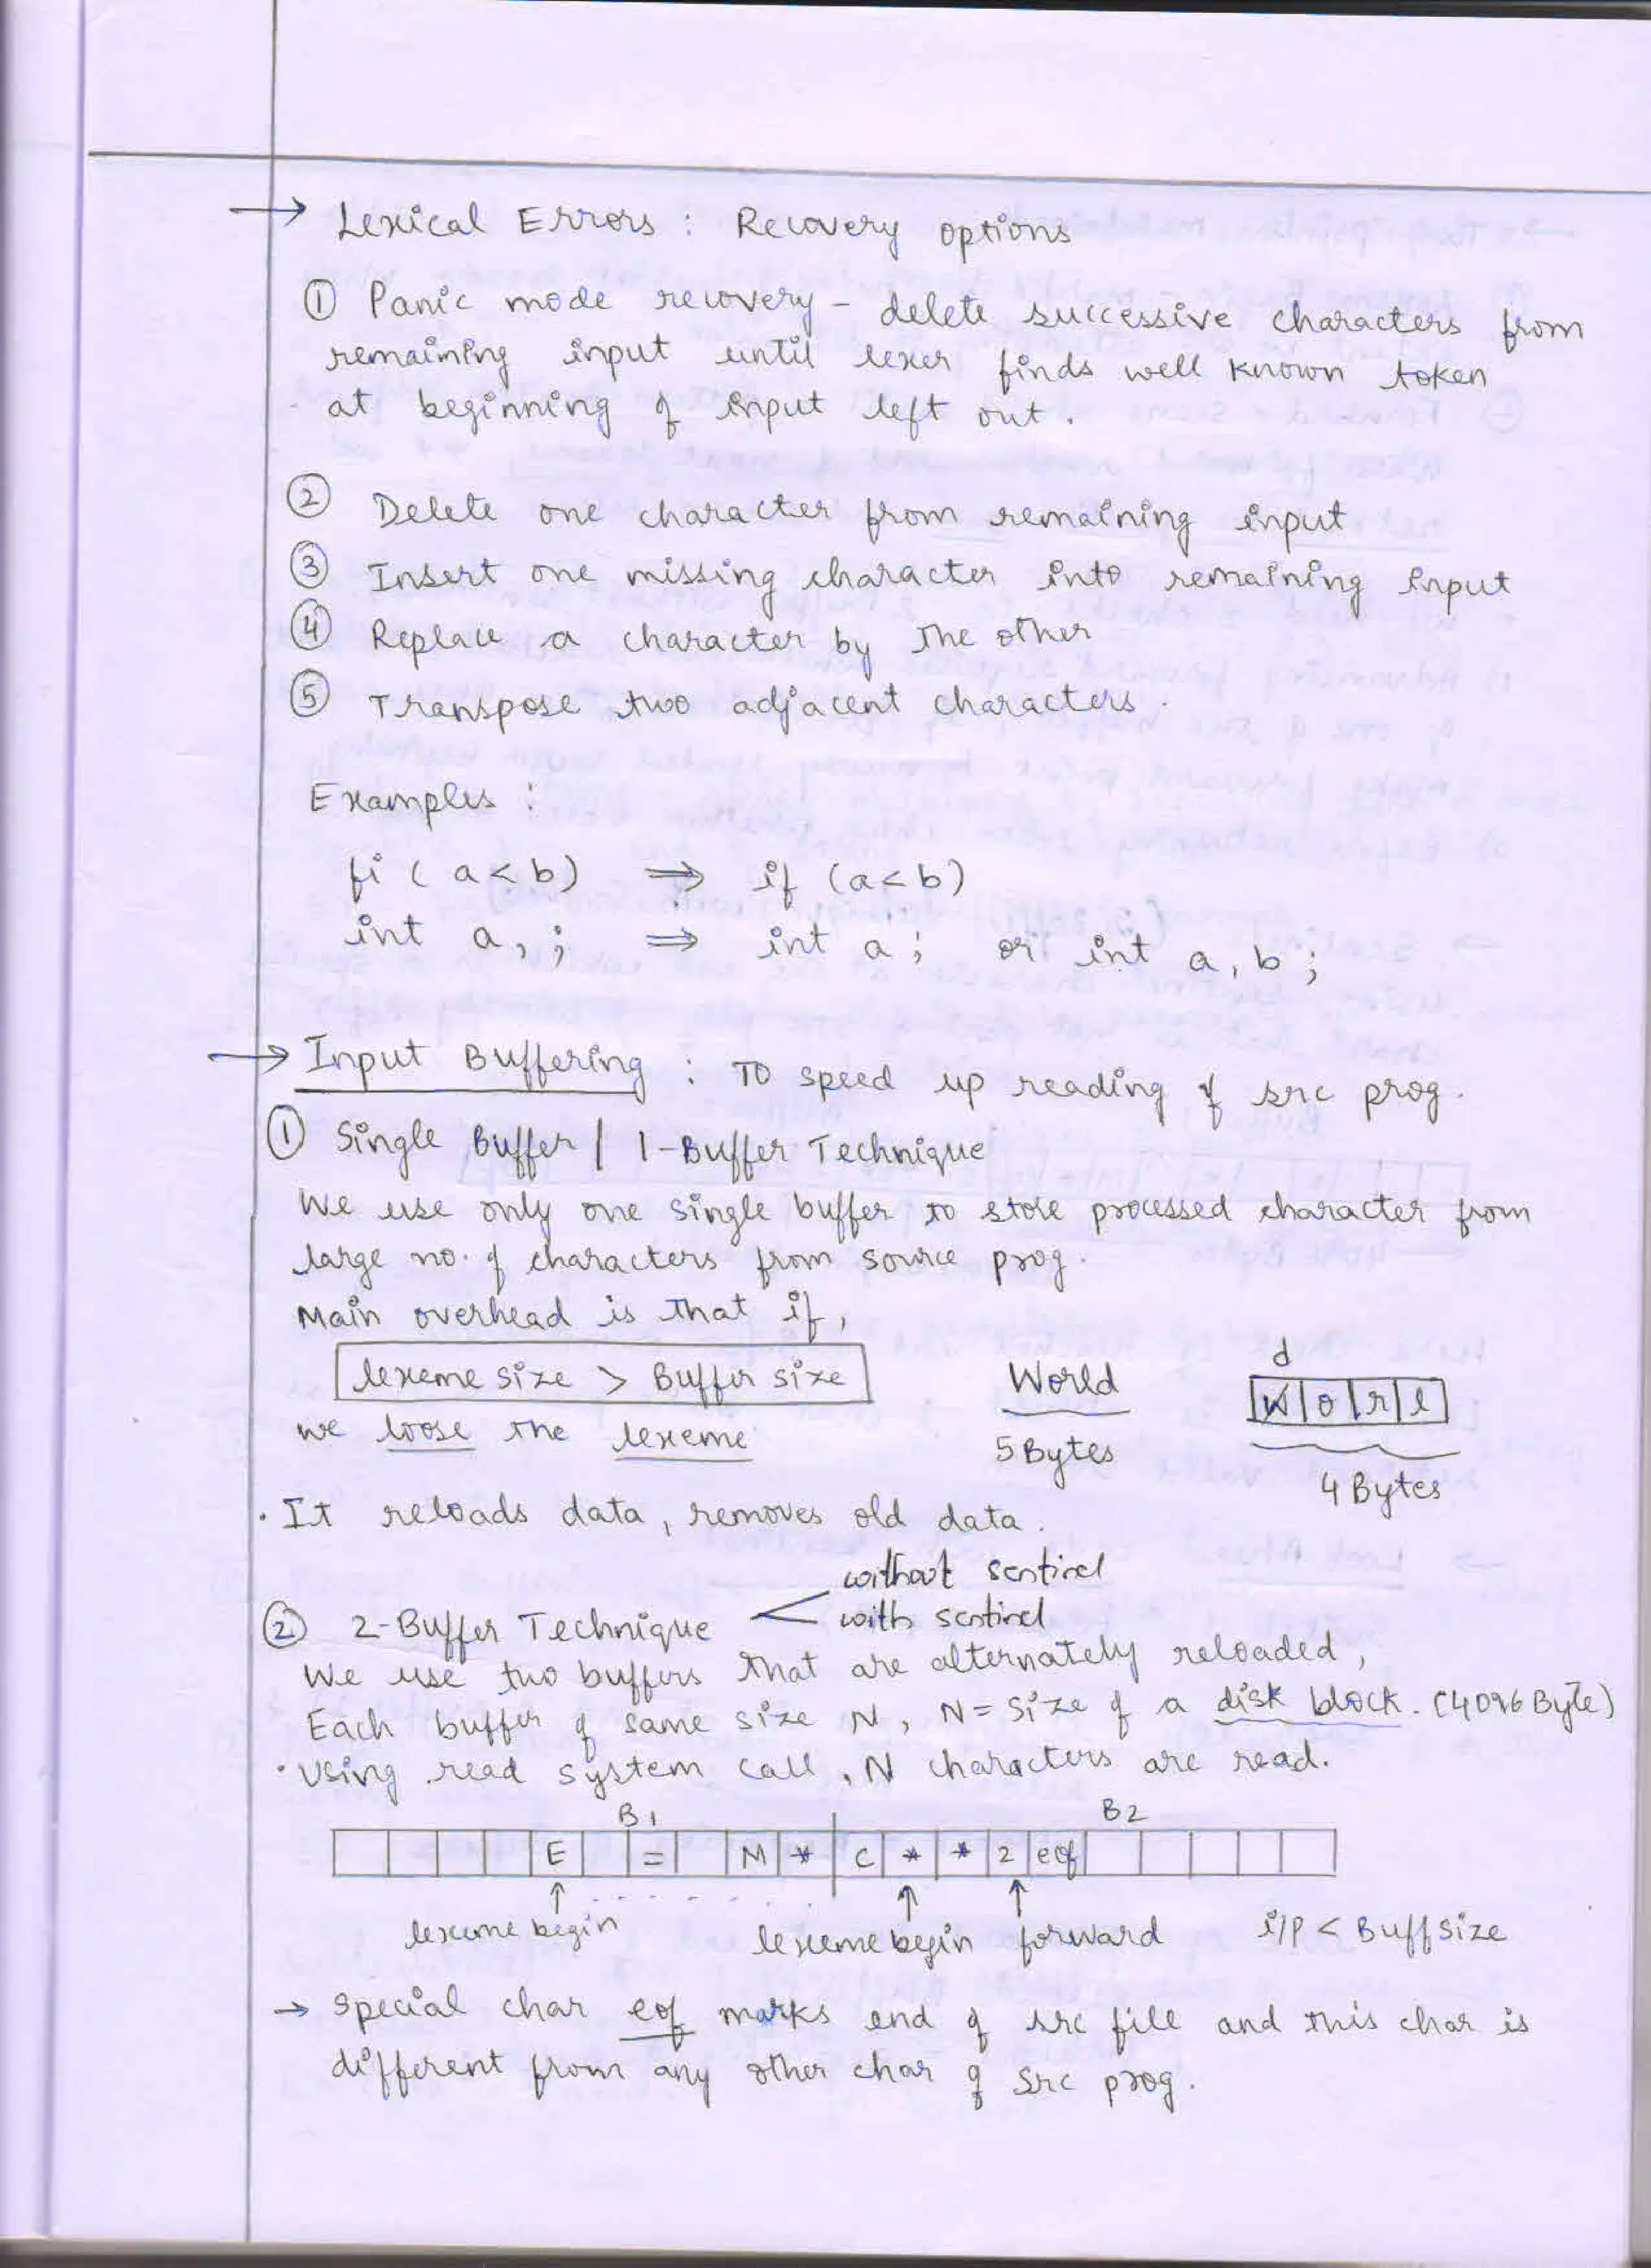 → Lexical Errors : Recovery options
① Panic mode recovery - delete successive characters from
remaining input until lexer finds well known token
at beginning of input left out.
② Delete one character from remaining input
③ Insert one missing character into remaining input
④ Replace a character by the other
⑤ Transpose two adjacent characters.
Examples :
fi ( a < b ) ⇒ if (a < b)
int a, ; ⇒ int a ; or int a, b ;
→ Input Buffering : To speed up reading of src prog.
① Single Buffer / 1-Buffer Technique
We use only one single buffer to store processed character from
large no. of characters from source prog.
Main overhead is that if,
lexeme size > Buffer size
we loose the lexeme
World
5 Bytes
d
W o r l
4 Bytes
· It reloads data, removes old data.
② 2-Buffer Technique < without sentinel
with sentinel
We use two buffers that are alternately reloaded,
Each buffer of same size N, N = size of a disk block. (4096 Byte)
· Using read system call, N characters are read.
B1 B2
E = M * C * * 2 eof
lexeme begin lexeme begin forward i/p < Buff size
→ special char eof marks end of src file and this char is
different from any other char of src prog.